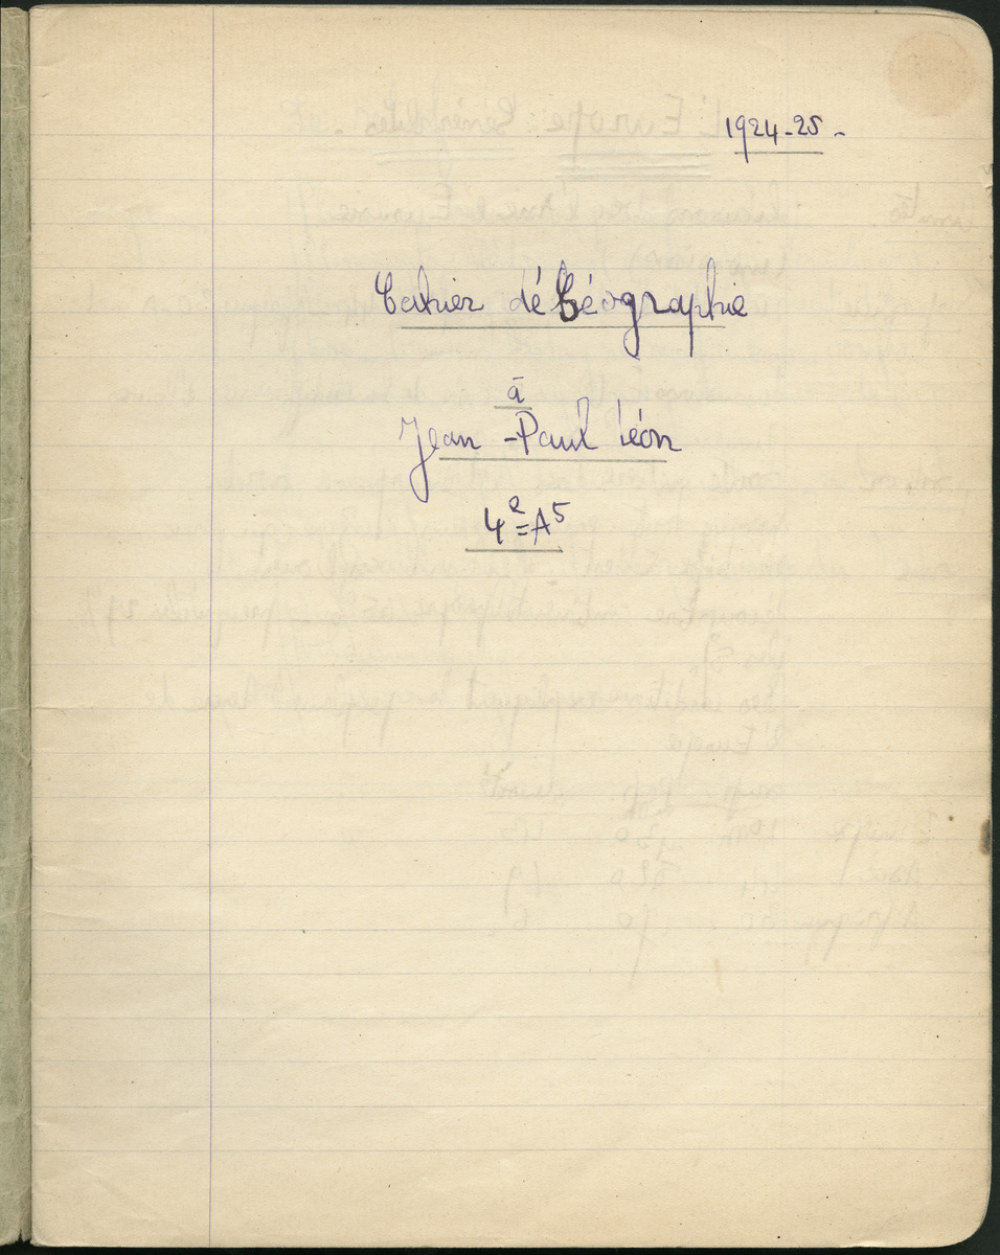 1924-25-
Cahier dé Géographie
à
Jean-Paul Léon
4e=A5